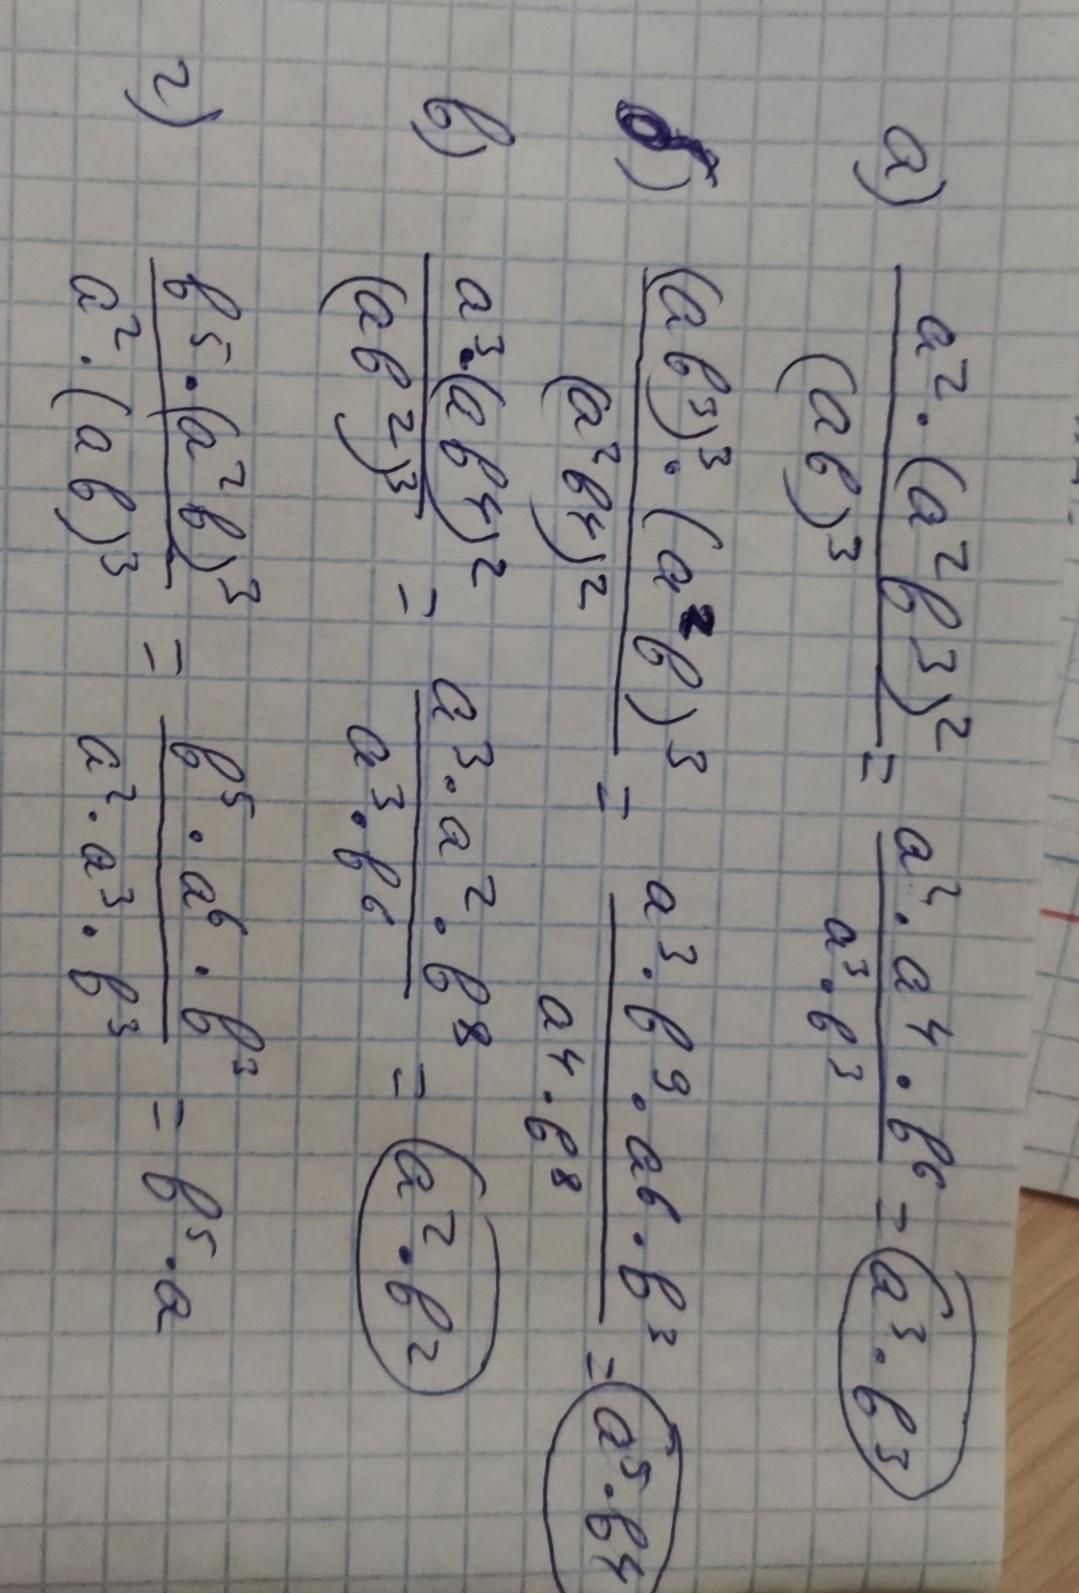 а) a²·(a²b³)²/(ab)³ = a²·a⁴·b⁶/a³·b³ = a³·b³
б) (ab³)³·(a²b)³/(a²b⁴)² = a³·b⁹·a⁶·b³/a⁴·b⁸ = a⁵·b⁴
в) a³·(ab⁴)²/(ab²)³ = a³·a²·b⁸/a³·b⁶ = a²·b²
г) b⁵·(a²b)³/a²·(ab)³ = b⁵·a⁶·b³/a²·a³·b³ = b⁵·a